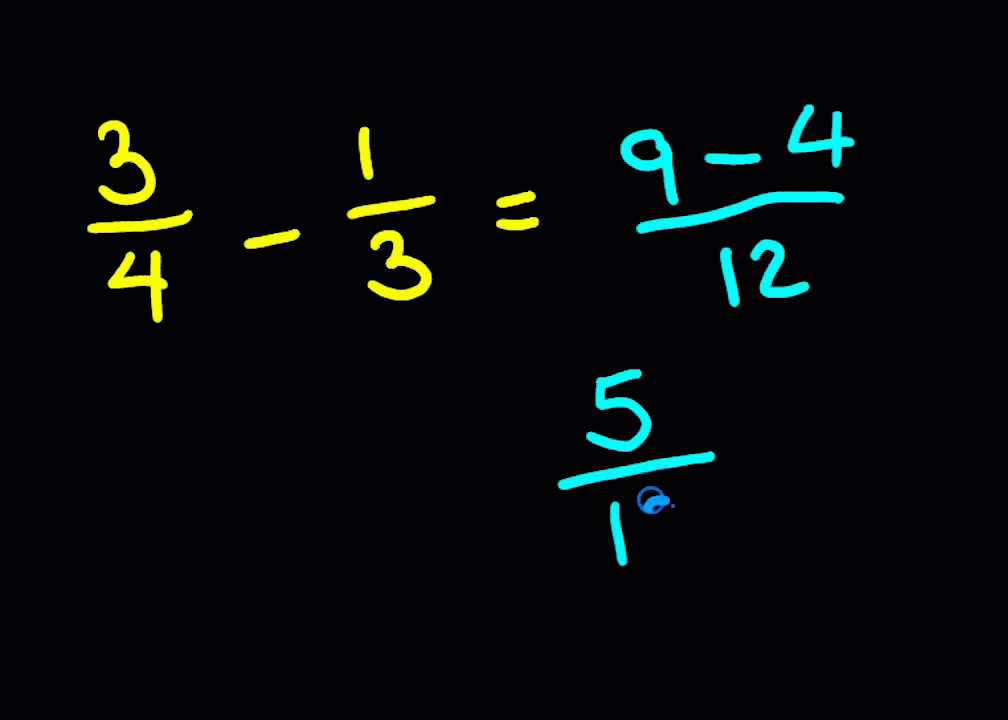 3/4 - 1/3 = 9 - 4/12
5/1